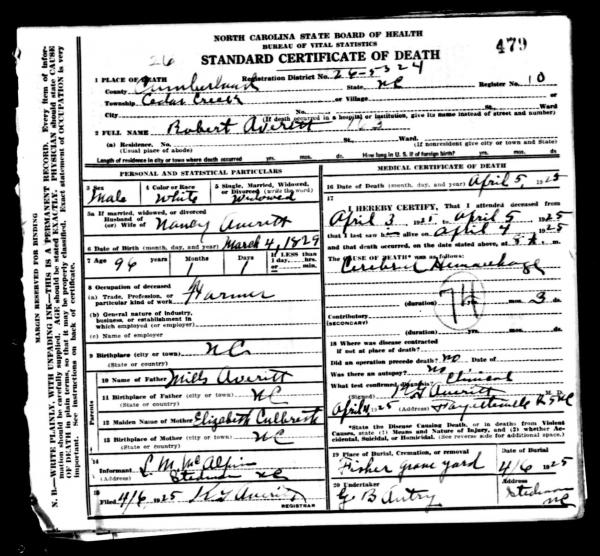 NORTH CAROLINA STATE BOARD OF HEALTH
BUREAU OF VITAL STATISTICS
STANDARD CERTIFICATE OF DEATH
479
26
1 PLACE OF DEATH
Registration District No. 26-5324
County Cumberland State NC Register No. 10
Township Cedar Creek or Village
City No. St. Ward
(If death occurred in a hospital or institution, give its name instead of street and number)
2 FULL NAME Robert Averitt
(a) Residence. No. St. Ward
(Usual place of abode) (If nonresident give city or town and State)
Length of residence in city or town where death occurred yrs. mos. ds. How long in U. S. if of foreign birth? yrs. mos. ds.
PERSONAL AND STATISTICAL PARTICULARS
3 Sex Male
4 Color or Race White
5 Single, Married, Widowed, or Divorced (write the word) Widowed
5a If married, widowed, or divorced
Husband of
(or) Wife of Nancy Averitt
6 Date of Birth (month, day, and year) March 4, 1829
7 Age 96 years Months 1 Days 1 If LESS than 1 day, hrs. or min.
8 Occupation of deceased
(a) Trade, Profession, or particular kind of work Farmer
(b) General nature of industry, business, or establishment in which employed (or employer)
(c) Name of employer
9 Birthplace (city or town) NC
(State or country)
Parents
10 Name of Father Mills Averitt
11 Birthplace of Father (city or town) NC
(State or country)
12 Maiden Name of Mother Elizabeth Culbreth
13 Birthplace of Mother (city or town) NC
(State or country)
14 Informant L. M. McAlpin
(Address) Stedman NC
15 Filed 4/6, 1925
REGISTRAR
MEDICAL CERTIFICATE OF DEATH
16 Date of Death (month, day, and year) April 5, 1925
17
I HEREBY CERTIFY, That I attended deceased from
April 3 to April 5 1925
that I last saw alive on April 4 1925
and that death occurred, on the date stated above, at m.
The CAUSE OF DEATH* was as follows:
Cerebral Hemorrhage
74
(duration) yrs. mos. 3 ds.
Contributory
(SECONDARY)
(duration) yrs. mos. ds.
18 Where was disease contracted
if not at place of death?
Did an operation precede death? no Date of
Was there an autopsy? no
What test confirmed diagnosis? Clinical
(Signed) Averitt M. D.
April 1925 (Address) Fayetteville NC
*State the Disease Causing Death, or in deaths from Violent Causes, state (1) Means and Nature of Injury, and (2) whether Accidental, Suicidal, or Homicidal. (See reverse side for additional space.)
19 Place of Burial, Cremation, or removal Fisher grave yard
Date of Burial 4/6 1925
20 Undertaker G B Autry
Stedman NC
MARGIN RESERVED FOR BINDING
N. B.—WRITE PLAINLY, WITH UNFADING INK—THIS IS A PERMANENT RECORD. Every item of information should be carefully supplied. AGE should be stated EXACTLY. PHYSICIAN should state CAUSE OF DEATH in plain terms, so that it may be properly classified. Exact statement of OCCUPATION is very important. See instructions on back of certificate.